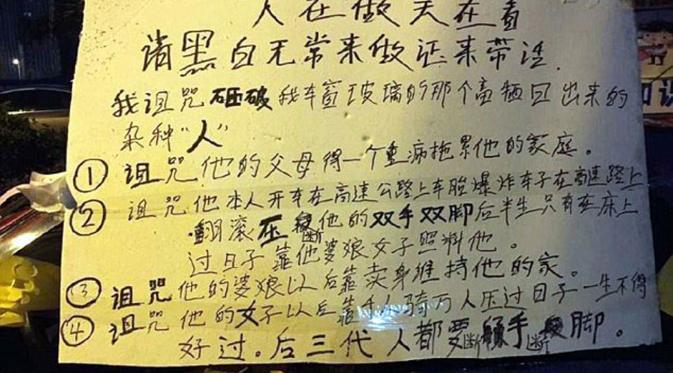 人在做天在看
请黑白无常来做证来带话.
我诅咒砸破我车窗玻璃的那个畜牲日出来的
杂种"人"
① 诅咒他的父母得一个重病拖累他的家庭。
② 诅咒他本人开车在高速公路上车胎爆炸车子在高速路上
翻滚压断他的双手双脚后半生只有在床上
过日子靠他婆娘女子照料他。
③ 诅咒他的婆娘以后靠卖身维持他的家。
④ 诅咒他的女子以后靠千人骑万人压过日子一生不得
好过。后三代人都要断手断脚。